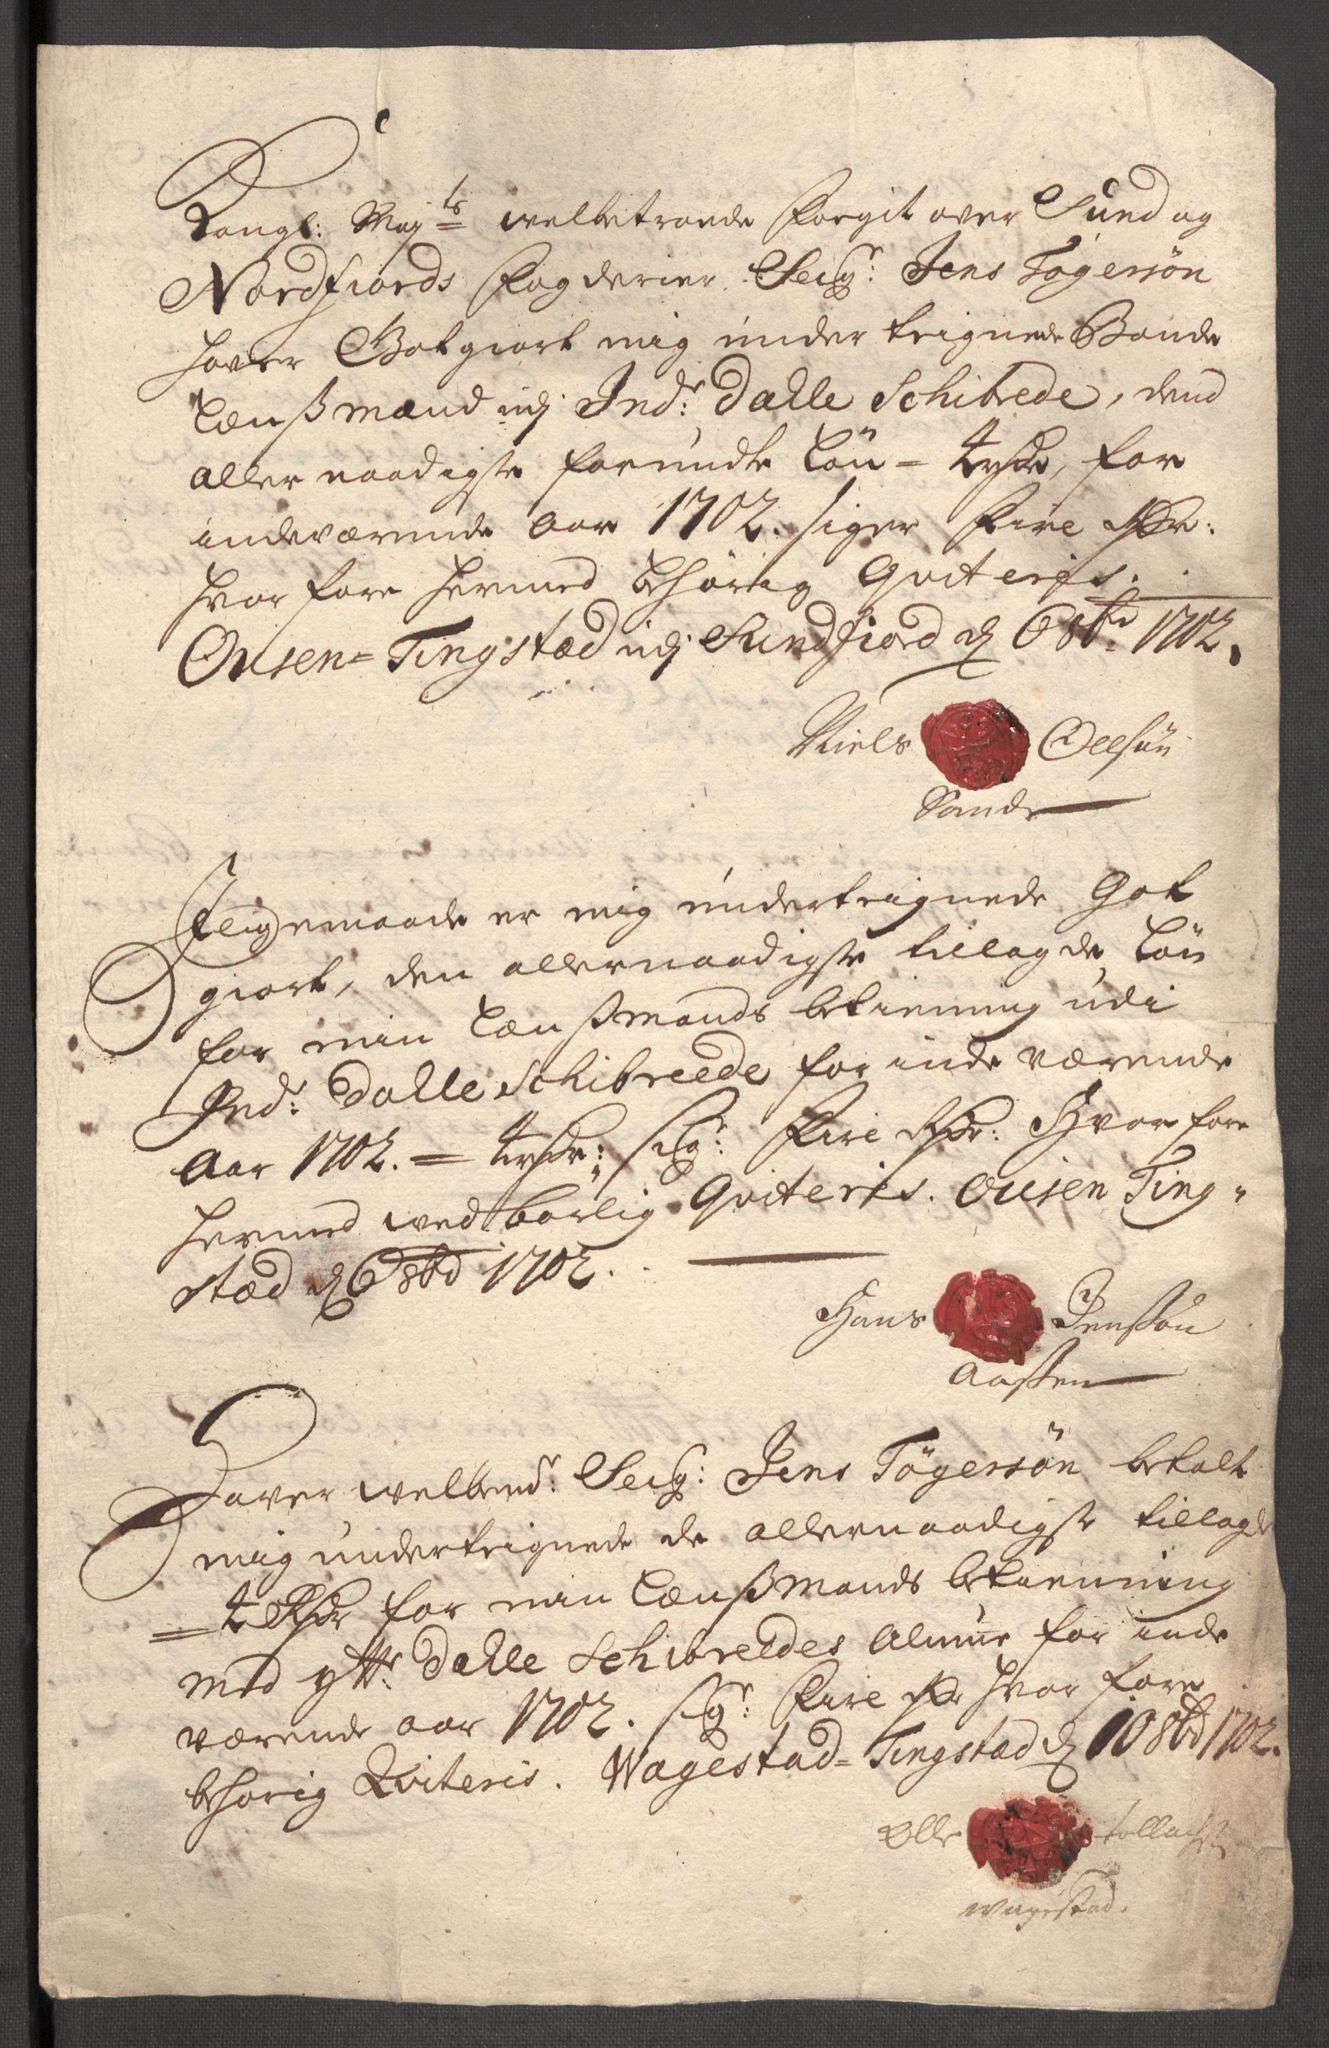 Kongl: Maj:ts welbetroede Foegit over Sund og
Nordfiords Fogderier. Seig:r Jens Tøgersøn
hafver Gotgiort mig under teignede Bonde
Lænßmand udj Ind:r Dalle Schibrede, dend
allernaadigste forundte Løn = 4 rdr, for
indeværende Aar 1702. siger Fire Rdr:
hvor fore hermed behørig Qviteris.
Ousen = Tingstæd udj Sundfiord d 6 8br 1702.
Niels Oelsøn
Sande
Jligemaade er mig underteignede Got
giort, den allernaadigste tillagde Løn
for min Lænßmands betiening udi
Ind:r Dalle Schibreede for inde værende
Aar 1702. = 4 rdr: sig:r Fire Rdr: Hvor fore
hermed wedbørlig Qviteris. Ousen Ting-
stæd d 6 8bd 1702.
Hans Jenßøn
Aaßen
Haver welbem:te Seig:r Jens Tøgersøn betalt
mig underteignede de allernaadigste tillagde
= 4 Rdr for min Lænßmands betienning
med ytt:r Dalle Schibreedes Almue for inde
værende aar 1702. sig:r Fire Rdr hvor fore
behørig Qviteris. Wagestad = Tingstæd d 10 8bd 1702.
Olle
Wagestad.